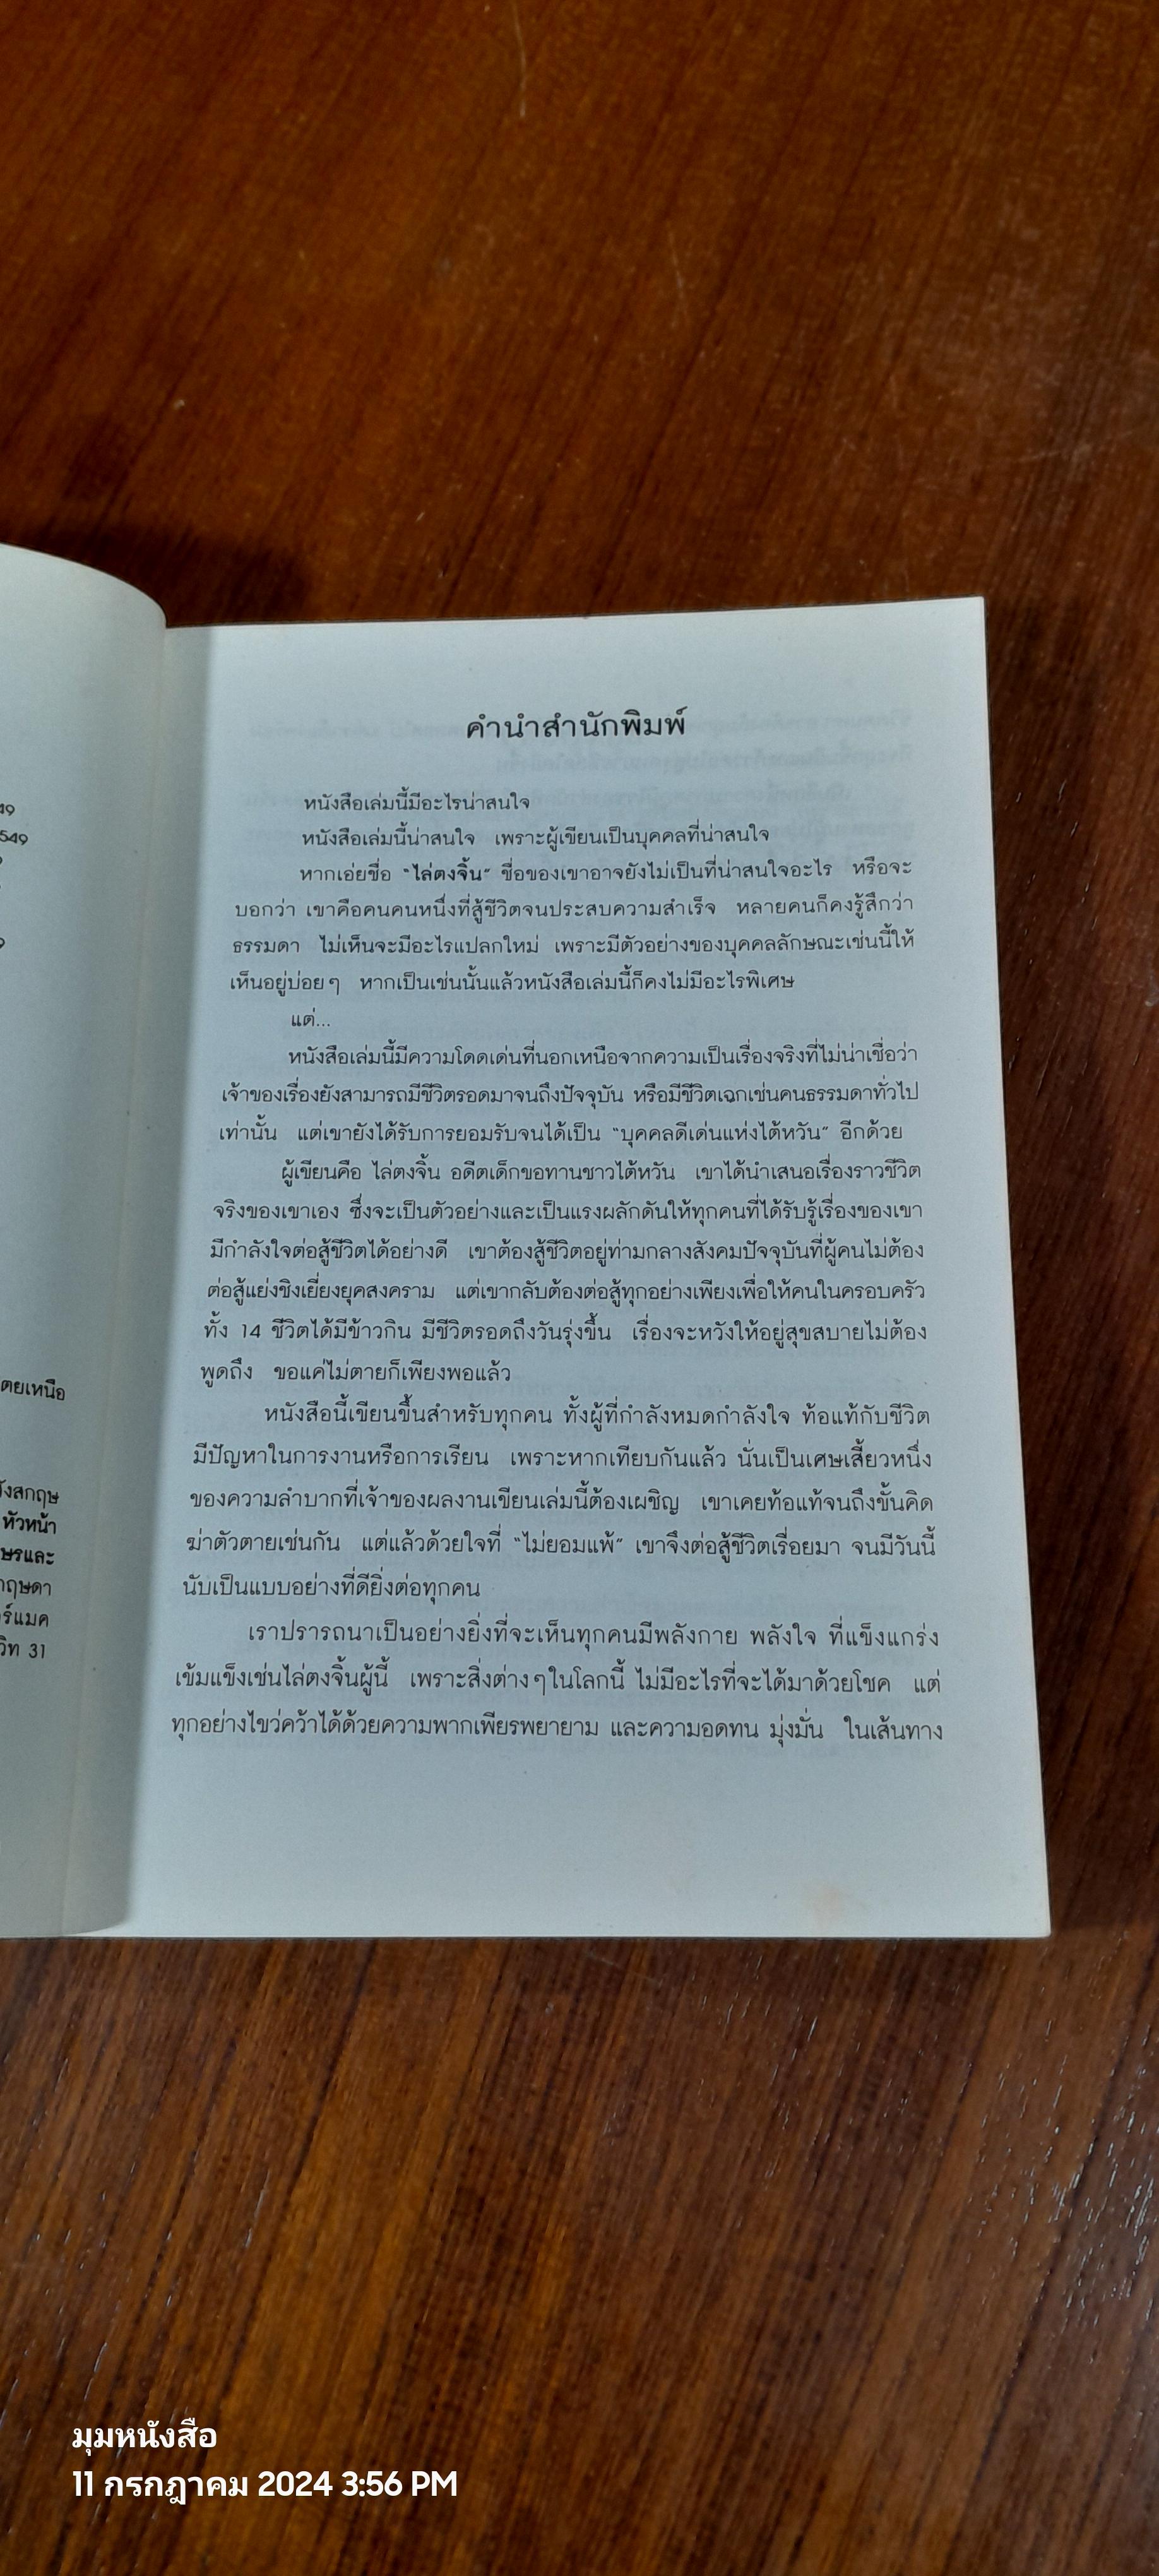 49
549
9
ตยเหนือ
ังสกฤษ
หัวหน้า
ษรและ
กฤษดา
ร์แมค
วิท 31
คำนำสำนักพิมพ์
หนังสือเล่มนี้มีอะไรน่าสนใจ
หนังสือเล่มนี้น่าสนใจ เพราะผู้เขียนเป็นบุคคลที่น่าสนใจ
หากเอ่ยชื่อ “ไล่ตงจิ้น” ชื่อของเขาอาจยังไม่เป็นที่น่าสนใจอะไร หรือจะ
บอกว่า เขาคือคนคนหนึ่งที่สู้ชีวิตจนประสบความสำเร็จ หลายคนก็คงรู้สึกว่า
ธรรมดา ไม่เห็นจะมีอะไรแปลกใหม่ เพราะมีตัวอย่างของบุคคลลักษณะเช่นนี้ให้
เห็นอยู่บ่อยๆ หากเป็นเช่นนั้นแล้วหนังสือเล่มนี้ก็คงไม่มีอะไรพิเศษ
แต่...
หนังสือเล่มนี้มีความโดดเด่นที่นอกเหนือจากความเป็นเรื่องจริงที่ไม่น่าเชื่อว่า
เจ้าของเรื่องยังสามารถมีชีวิตรอดมาจนถึงปัจจุบัน หรือมีชีวิตเฉกเช่นคนธรรมดาทั่วไป
เท่านั้น แต่เขายังได้รับการยอมรับจนได้เป็น “บุคคลดีเด่นแห่งไต้หวัน” อีกด้วย
ผู้เขียนคือ ไล่ตงจิ้น อดีตเด็กขอทานชาวไต้หวัน เขาได้นำเสนอเรื่องราวชีวิต
จริงของเขาเอง ซึ่งจะเป็นตัวอย่างและเป็นแรงผลักดันให้ทุกคนที่ได้รับรู้เรื่องของเขา
มีกำลังใจต่อสู้ชีวิตได้อย่างดี เขาต้องสู้ชีวิตอยู่ท่ามกลางสังคมปัจจุบันที่ผู้คนไม่ต้อง
ต่อสู้แย่งชิงเยี่ยงยุคสงคราม แต่เขากลับต้องต่อสู้ทุกอย่างเพียงเพื่อให้คนในครอบครัว
ทั้ง 14 ชีวิตได้มีข้าวกิน มีชีวิตรอดถึงวันรุ่งขึ้น เรื่องจะหวังให้อยู่สุขสบายไม่ต้อง
พูดถึง ขอแค่ไม่ตายก็เพียงพอแล้ว
หนังสือนี้เขียนขึ้นสำหรับทุกคน ทั้งผู้ที่กำลังหมดกำลังใจ ท้อแท้กับชีวิต
มีปัญหาในการงานหรือการเรียน เพราะหากเทียบกันแล้ว นั่นเป็นเศษเสี้ยวหนึ่ง
ของความลำบากที่เจ้าของผลงานเขียนเล่มนี้ต้องเผชิญ เขาเคยท้อแท้จนถึงขั้นคิด
ฆ่าตัวตายเช่นกัน แต่แล้วด้วยใจที่ “ไม่ยอมแพ้” เขาจึงต่อสู้ชีวิตเรื่อยมา จนมีวันนี้
นับเป็นแบบอย่างที่ดียิ่งต่อทุกคน
เราปรารถนาเป็นอย่างยิ่งที่จะเห็นทุกคนมีพลังกาย พลังใจ ที่แข็งแกร่ง
เข้มแข็งเช่นไล่ตงจิ้นผู้นี้ เพราะสิ่งต่างๆในโลกนี้ ไม่มีอะไรที่จะได้มาด้วยโชค แต่
ทุกอย่างไขว่คว้าได้ด้วยความพากเพียรพยายาม และความอดทน มุ่งมั่น ในเส้นทาง
มุมหนังสือ
11 กรกฎาคม 2024 3:56 PM